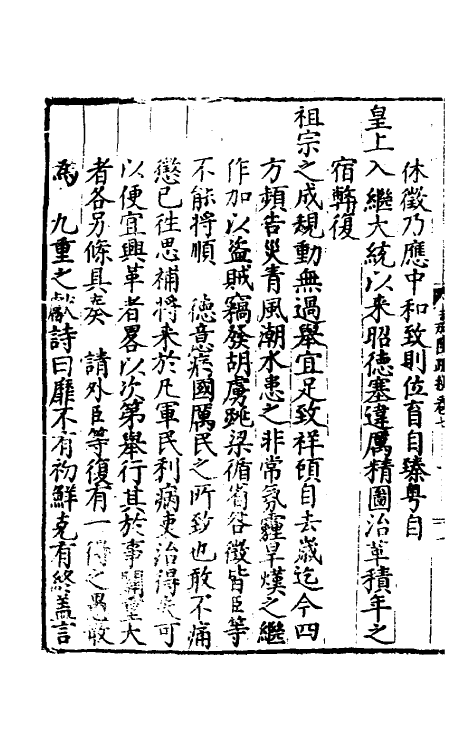 休徵乃應中和致則位育自臻粵自
皇上入繼大統以来昭德塞違厲精圖治革積年之
宿弊復
祖宗之成規動無過舉宜足致祥頋自去歲迄今四
方頻告災青風潮水患之非常氛霾旱熯之繼
作加以盗賊竊發胡虜跳梁循省咎徵皆臣等
不能将順 德意瘝國厲民之所致也敢不痛
懲已徃思補将来於凡軍民利病吏治得失可
以便宜興革者畧以次第舉行其於事關重大
者各另條具奏 請外臣等復有一得之愚敢
為 九重之獻詩曰靡不有初鮮克有終盖言
卷七